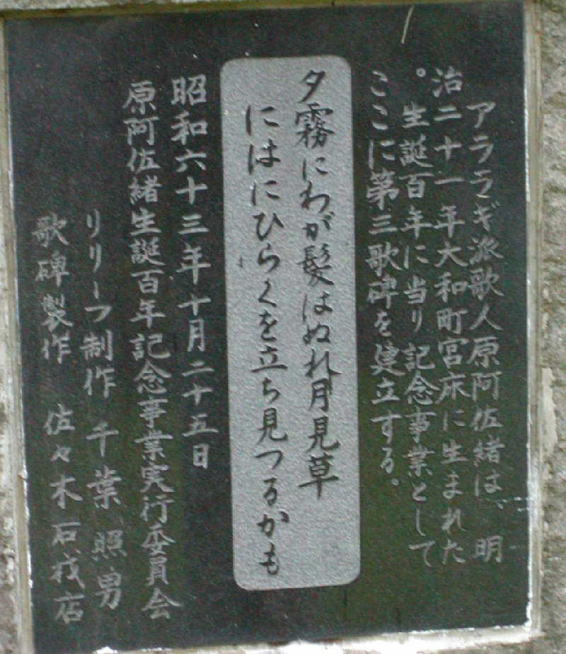 アララギ派歌人原阿佐緒は、明
治二十一年大和町宮床に生まれた
。生誕百年に当り記念事業として
ここに第三歌碑を建立する。
夕霧にわが髪はぬれ月見草
にはにひらくを立ち見つるかも
昭和六十三年十月二十五日
原阿佐緒生誕百年記念事業実行委員会
リリーフ制作 千葉照男
歌碑製作 佐々木石材店